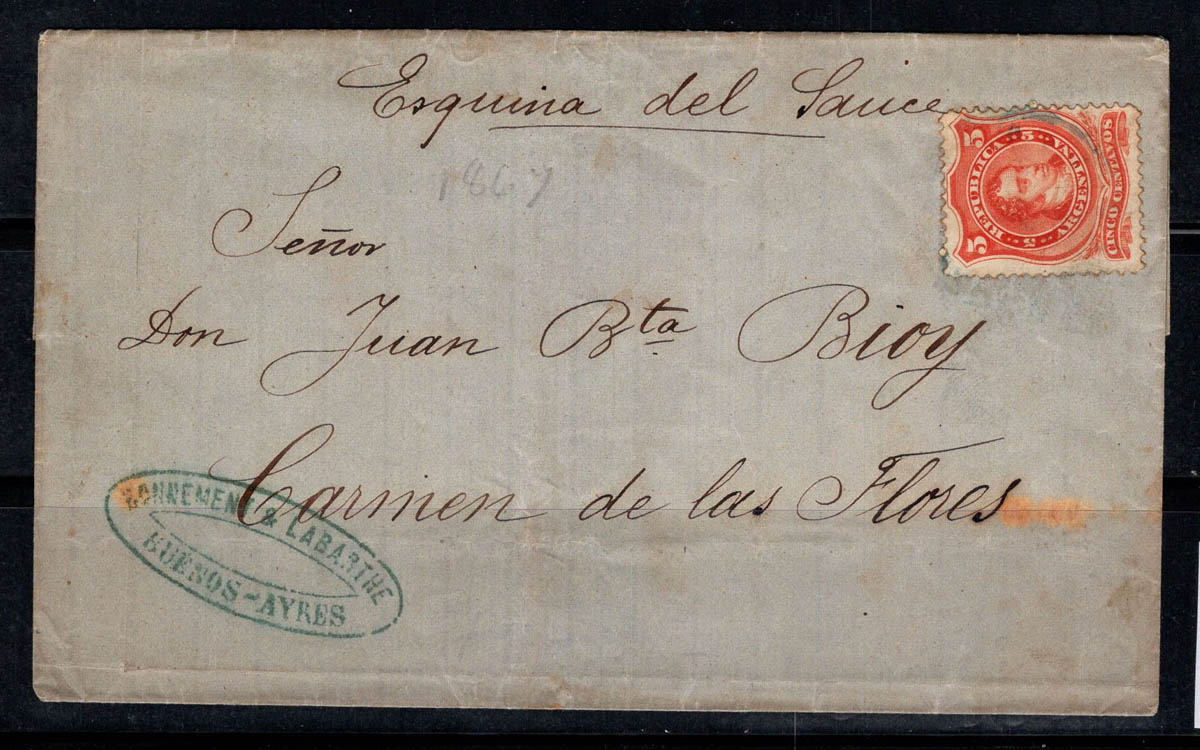 Esquina del Sauce
1867
Señor
Don Juan Bta Bioy
Carmen de las Flores
BONNEMENT & LABARTHE
BUENOS-AYRES
REPUBLICA ARGENTINA
5 5
5 5
CINCO CENTAVOS